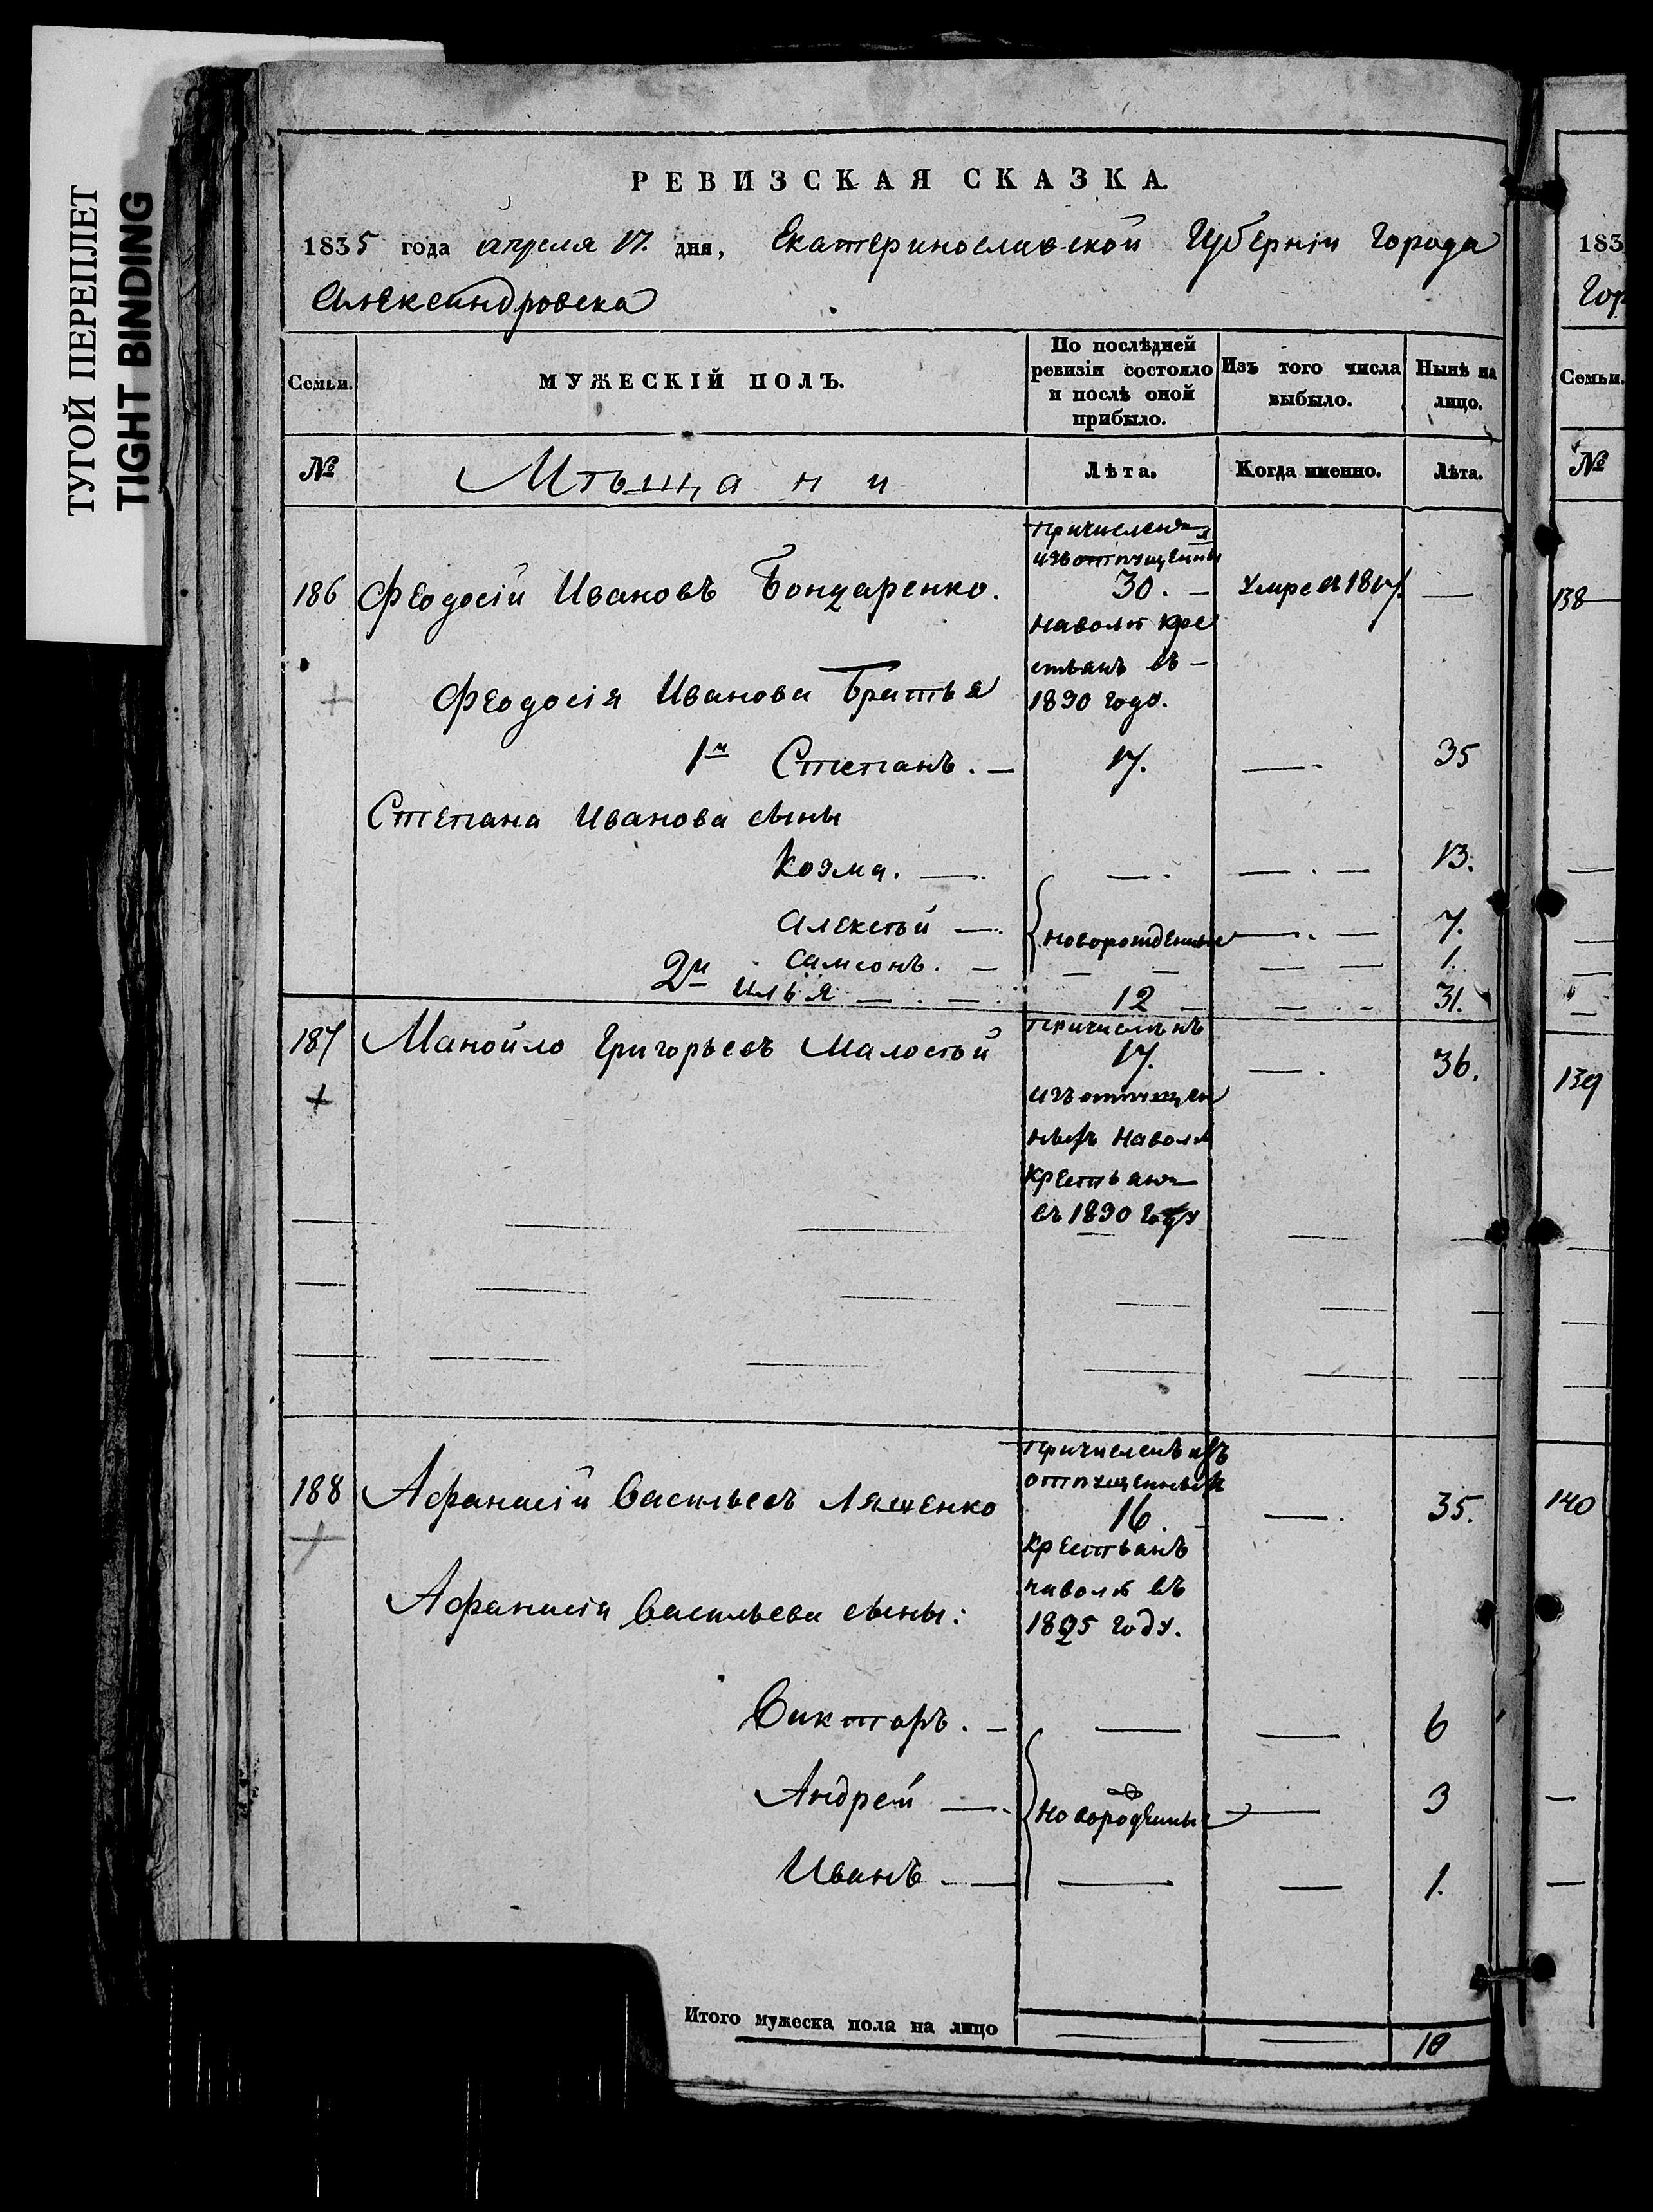 ТУГОЙ ПЕРЕПЛЕТ
TIGHT BINDING
РЕВИЗСКАЯ СКАЗКА.
1835 года апреля 17. дня, Екатеринославской Губерніи Города
Александровска
Семьи.
МУЖЕСКІЙ ПОЛЪ.
По послѣдней
ревизіи состояло
и послѣ оной
прибыло.
Изъ того числа
выбыло.
Нынѣ на
лицо.
№
Мѣщани
Лѣта.
Когда именно.
Лѣта.
причислены
изъ отпущены
186 Феодосій Ивановъ Бондаренко. 30. — —
наволю кре
стьянъ въ —
Феодосія Иванова Братья 1830 году.
1й Степанъ. — 17. —. 35
Степана Иванова сыны
Козма. — —. — . — 13.
Алексѣй — новорожденные — . — 7.
Самсонъ. — — — — — 1.
2й Илья — . — . 12 — — . — 31.
187 Манойло Григорьевъ Малостой причисленъ 17. — . 36.
изъ отпущен
ныхъ наволю
крестьянъ
въ 1830 году
причисленъ изъ
отпущенныхъ
188 Афанасій Васильевъ Лященко 16. — . 35.
крестьянъ
наволю въ
Афанасія Васильева сыны: 1825 году.
Викторъ. — — — 6
Андрей — . новородженные — 3
Иванъ — — — 1.
Итого мужеска пола на лицо — — 10
183
Гор
Семьи.
№
138
139
140